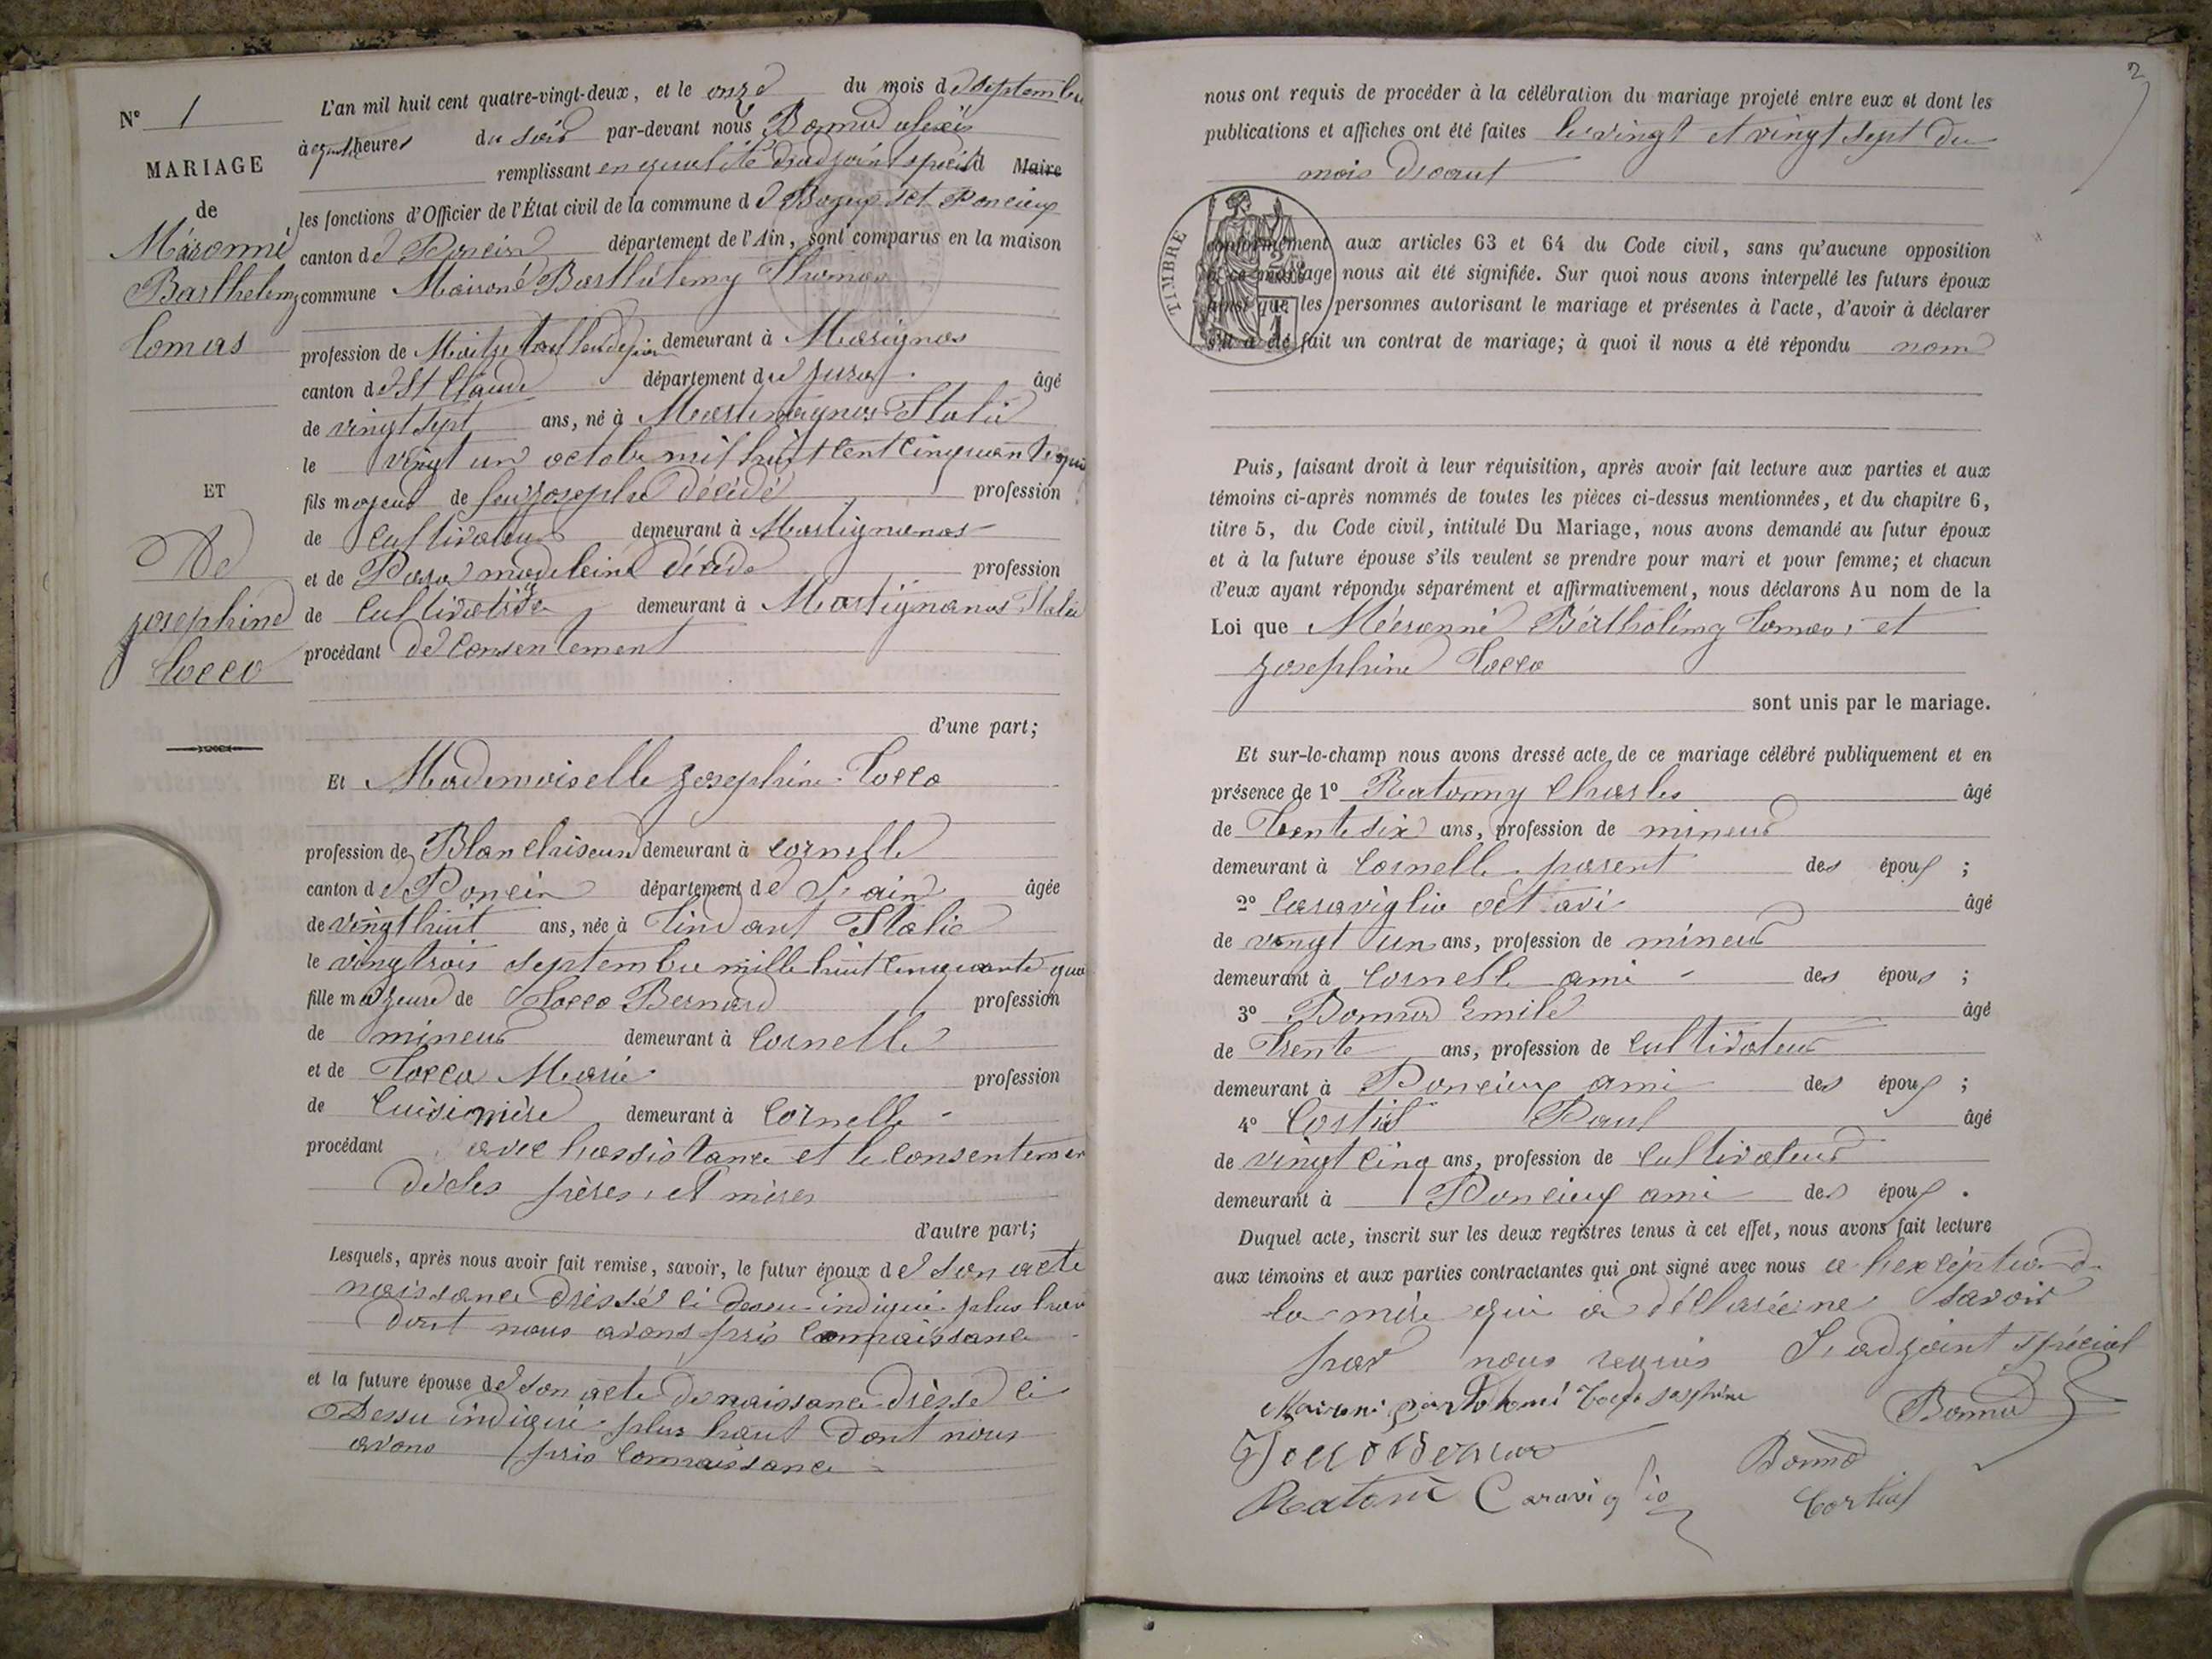 N° 1
MARIAGE
de
Maronné
Barthelemy
Tomas
ET
De
Josephine
Tocco
L'an mil huit cent quatre-vingt-deux, et le onze du mois de Septembre
à quatre heures du soir par-devant nous Bonnud alexis
remplissant en qualité d'adjoint spécial Maire
les fonctions d'Officier de l'État civil de la commune de Boyeux St Poncieux
canton de Poncin département de l'Ain, sont comparus en la maison
commune Maironé Barthélemy Thomas
profession de demeurant à
canton de St Claude département du Jura âgé
de vingt sept ans, né à Italie
le vingt un octobre mil huit cent cinquante
fils majeur de feu Joseph décédé profession
de Cultivateur demeurant à
et de madeleine décédé profession
de Cultivatrice demeurant à Italie
procédant de consentement
d'une part;
Et Mademoiselle Josephine Tocco
profession de Blanchiseuse demeurant à Cornelle
canton de Poncin département de L'ain âgée
de vingt huit ans, née à Italie
le vingtrois septembre mille huit cinquante qua
fille majeure de Tocco Bernard profession
de mineur demeurant à Cornelle
et de Tocco Marie profession
de Cuisinière demeurant à Cornelle
procédant avec l'assistance et le consentement
de ces pères et mères
d'autre part;
Lesquels, après nous avoir fait remise, savoir, le futur époux de son acte
naissance dressé ci dessu indiqué plus haut
dont nous avons pris connaissance
et la future épouse de son acte de naissance dressé ci
Dessu indiqué plus haut dont nous
avons pris connaissance
2
nous ont requis de procéder à la célébration du mariage projeté entre eux et dont les
publications et affiches ont été faites le vingt et vingt sept du
mois daout
TIMBRE
conformément aux articles 63 et 64 du Code civil, sans qu'aucune opposition
à ce mariage nous ait été signifiée. Sur quoi nous avons interpellé les futurs époux
ainsi que les personnes autorisant le mariage et présentes à l'acte, d'avoir à déclarer
s'il a été fait un contrat de mariage; à quoi il nous a été répondu nom
Puis, faisant droit à leur réquisition, après avoir fait lecture aux parties et aux
témoins ci-après nommés de toutes les pièces ci-dessus mentionnées, et du chapitre 6,
titre 5, du Code civil, intitulé Du Mariage, nous avons demandé au futur époux
et à la future épouse s'ils veulent se prendre pour mari et pour femme; et chacun
d'eux ayant répondu séparément et affirmativement, nous déclarons Au nom de la
Loi que Méeronné Bértholémy Tomas et
Josephine Tocco
sont unis par le mariage.
Et sur-le-champ nous avons dressé acte de ce mariage célébré publiquement et en
présence de 1° Ratonny Charles âgé
de Trente six ans, profession de mineur
demeurant à Cornelle parent des époux ;
2° Caraviglio octavi âgé
de vingt un ans, profession de mineur
demeurant à Cornell ami des épous ;
3° Bonnud Emile âgé
de Trente ans, profession de Cultivateur
demeurant à Poncieux ami des époux ;
4° Paul âgé
de vingt cinq ans, profession de Cultivateur
demeurant à Poncieux ami des époux .
Duquel acte, inscrit sur les deux registres tenus à cet effet, nous avons fait lecture
aux témoins et aux parties contractantes qui ont signé avec nous a l'exception de
la mère qui a déclarée ne savoir
par nous requis L'adjoint spécial
Maironi Bartolomé Tocco Josephine Bonnud
Tocco Bernar Bonnud
Ratoni Caraviglio